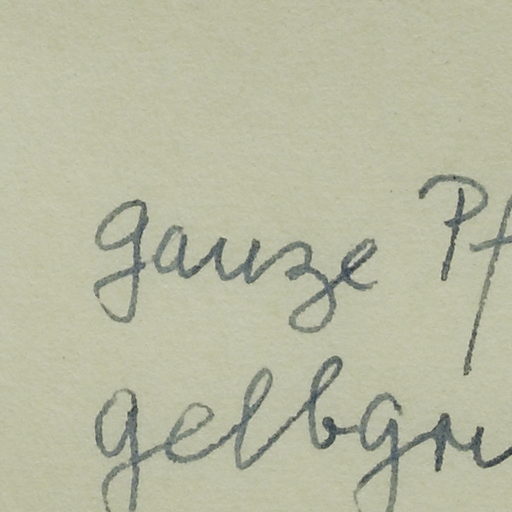 ganze Pf
gelbgrü